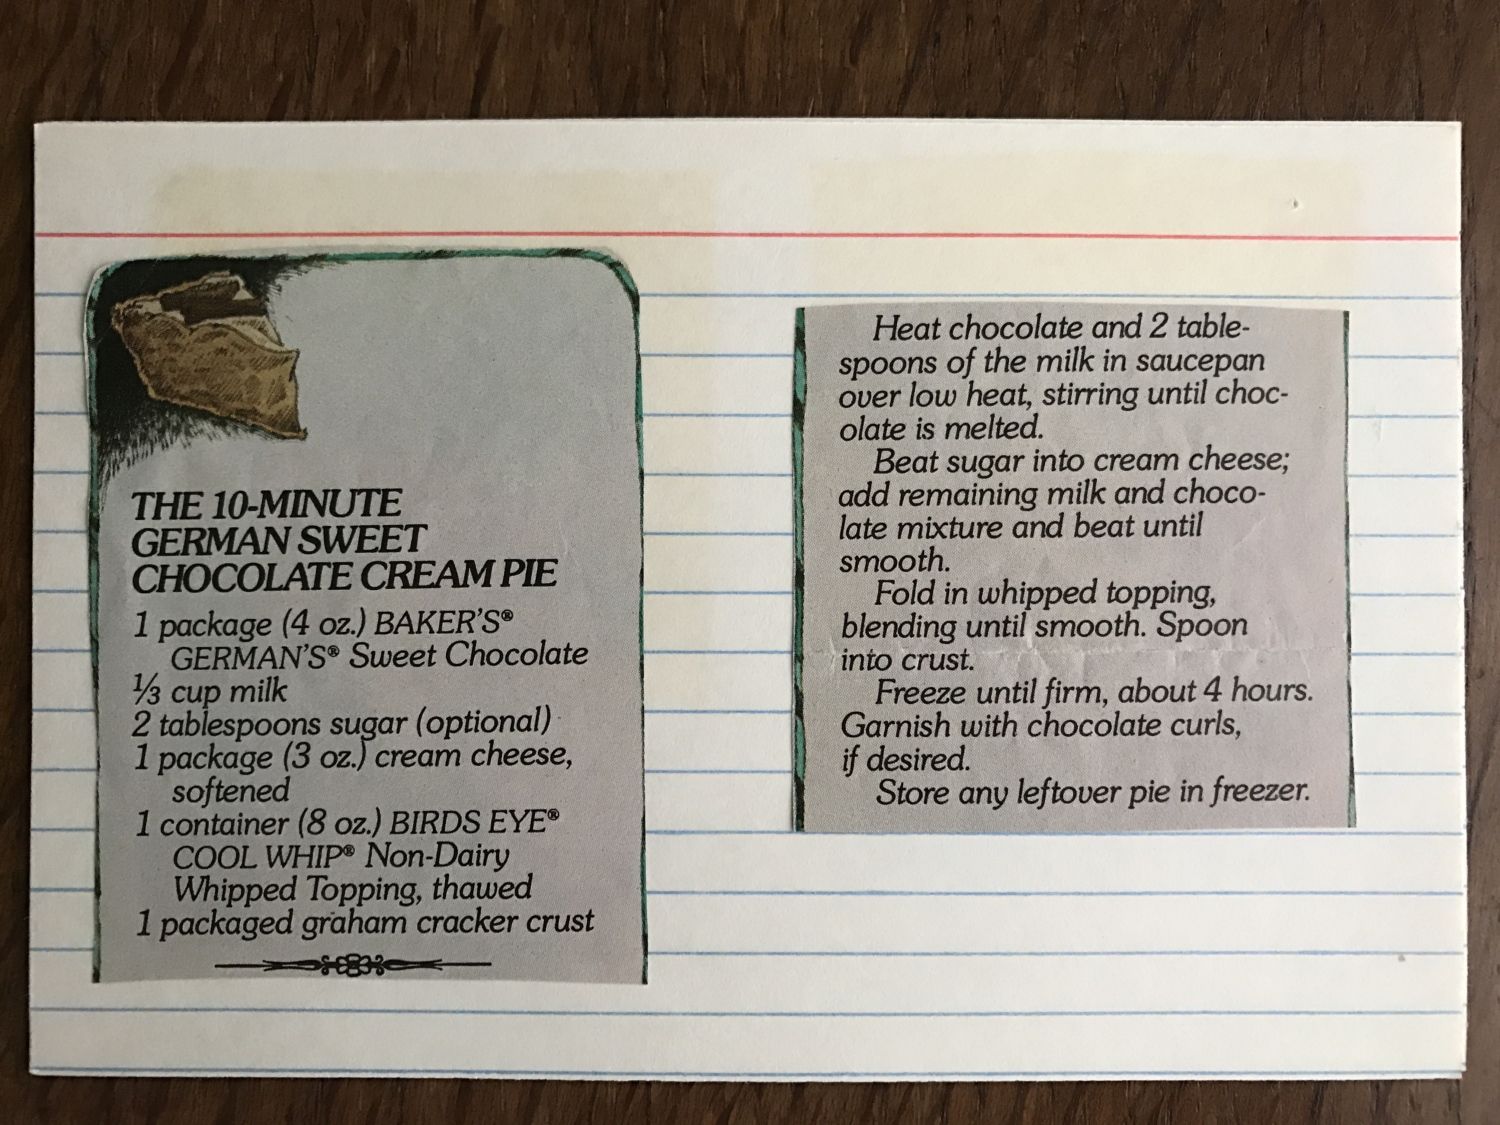 THE 10-MINUTE
GERMAN SWEET
CHOCOLATE CREAM PIE
1 package (4 oz.) BAKER'S®
GERMAN'S® Sweet Chocolate
⅓ cup milk
2 tablespoons sugar (optional)
1 package (3 oz.) cream cheese,
softened
1 container (8 oz.) BIRDS EYE®
COOL WHIP® Non-Dairy
Whipped Topping, thawed
1 packaged graham cracker crust
Heat chocolate and 2 table-
spoons of the milk in saucepan
over low heat, stirring until choc-
olate is melted.
Beat sugar into cream cheese;
add remaining milk and choco-
late mixture and beat until
smooth.
Fold in whipped topping,
blending until smooth. Spoon
into crust.
Freeze until firm, about 4 hours.
Garnish with chocolate curls,
if desired.
Store any leftover pie in freezer.